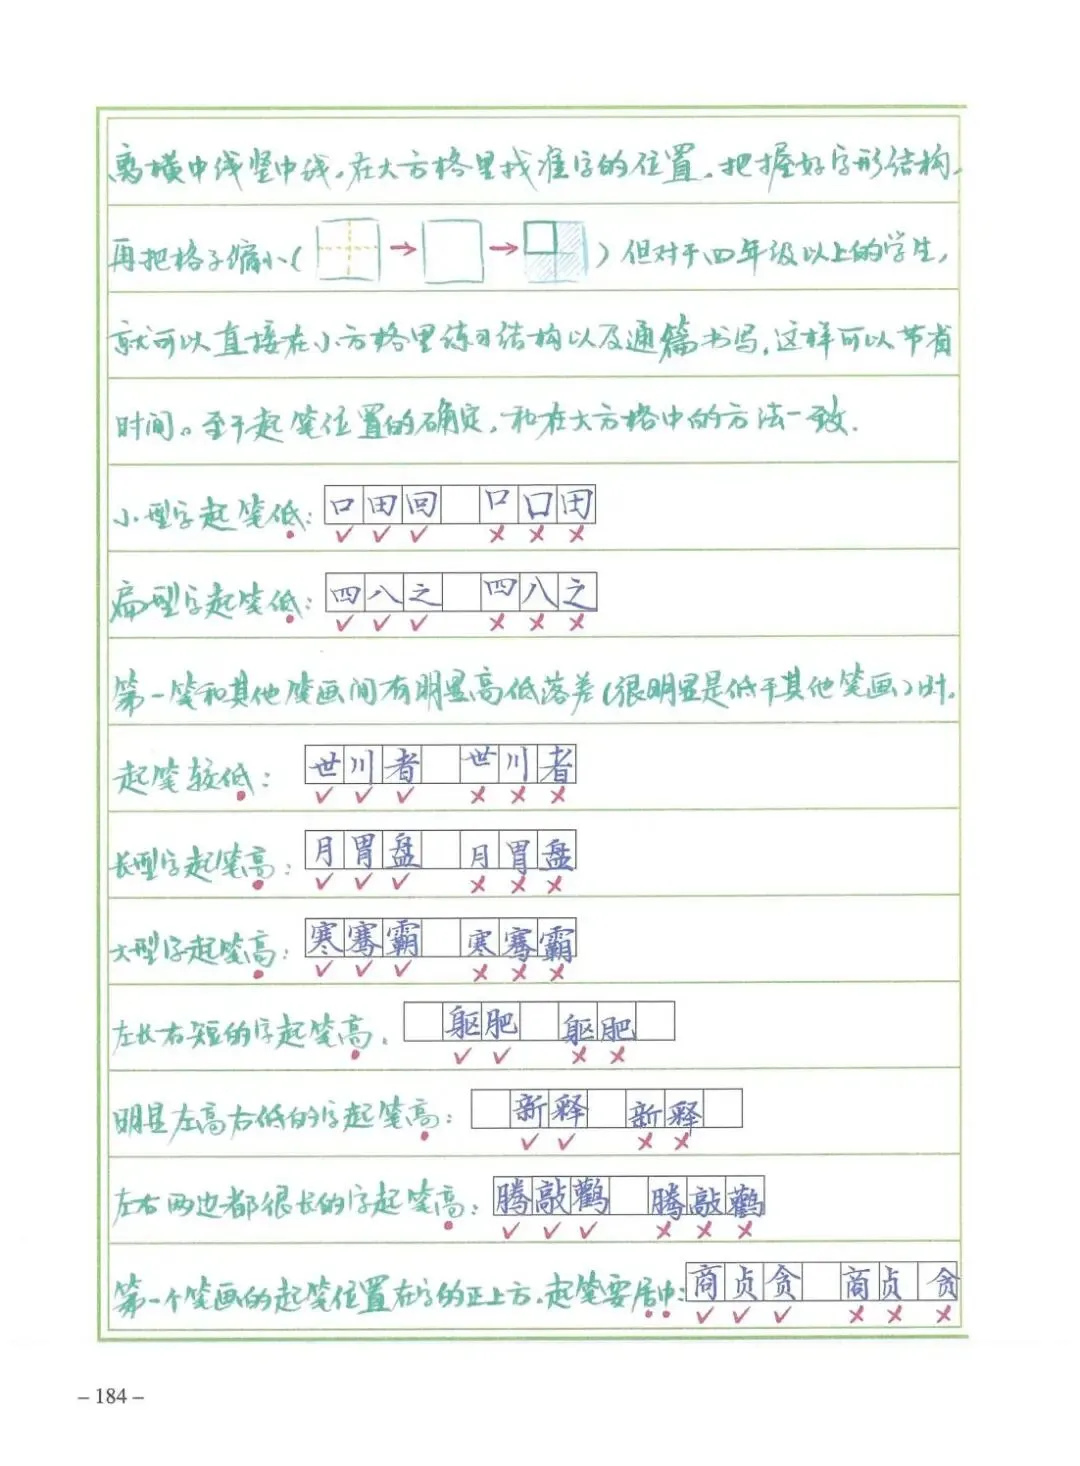 离横中线竖中线，在大方格里找准字的位置，把握好字形结构，
再把格子缩小（ → → ）但对于四年级以上的学生，
就可以直接在小方格里练习结构以及通篇书写，这样可以节省
时间。至于起笔位置的确定，和在大方格中的方法一致.
小型字起笔低：口田回 口口田
✓ ✓ ✓ × × ×
扁型字起笔低：四八之 四八之
✓ ✓ ✓ × × ×
第一笔和其他笔画间有明显高低落差（很明显是低于其他笔画）时，
起笔较低：世川者 世川者
✓ ✓ ✓ × × ×
长型字起笔高：月胃盘 月胃盘
✓ ✓ ✓ × × ×
大型字起笔高：寒骞霸 寒骞霸
✓ ✓ ✓ × × ×
左长右短的字起笔高：躯肥 躯肥
✓ ✓ × ×
明显左高右低的字起笔高：新释 新释
✓ ✓ × ×
左右两边都很长的字起笔高：腾敲鹳 腾敲鹳
✓ ✓ ✓ × × ×
第一个笔画的起笔位置在字的正上方，起笔要居中：商贞贪 商贞贪
✓ ✓ ✓ × × ×
– 184 –